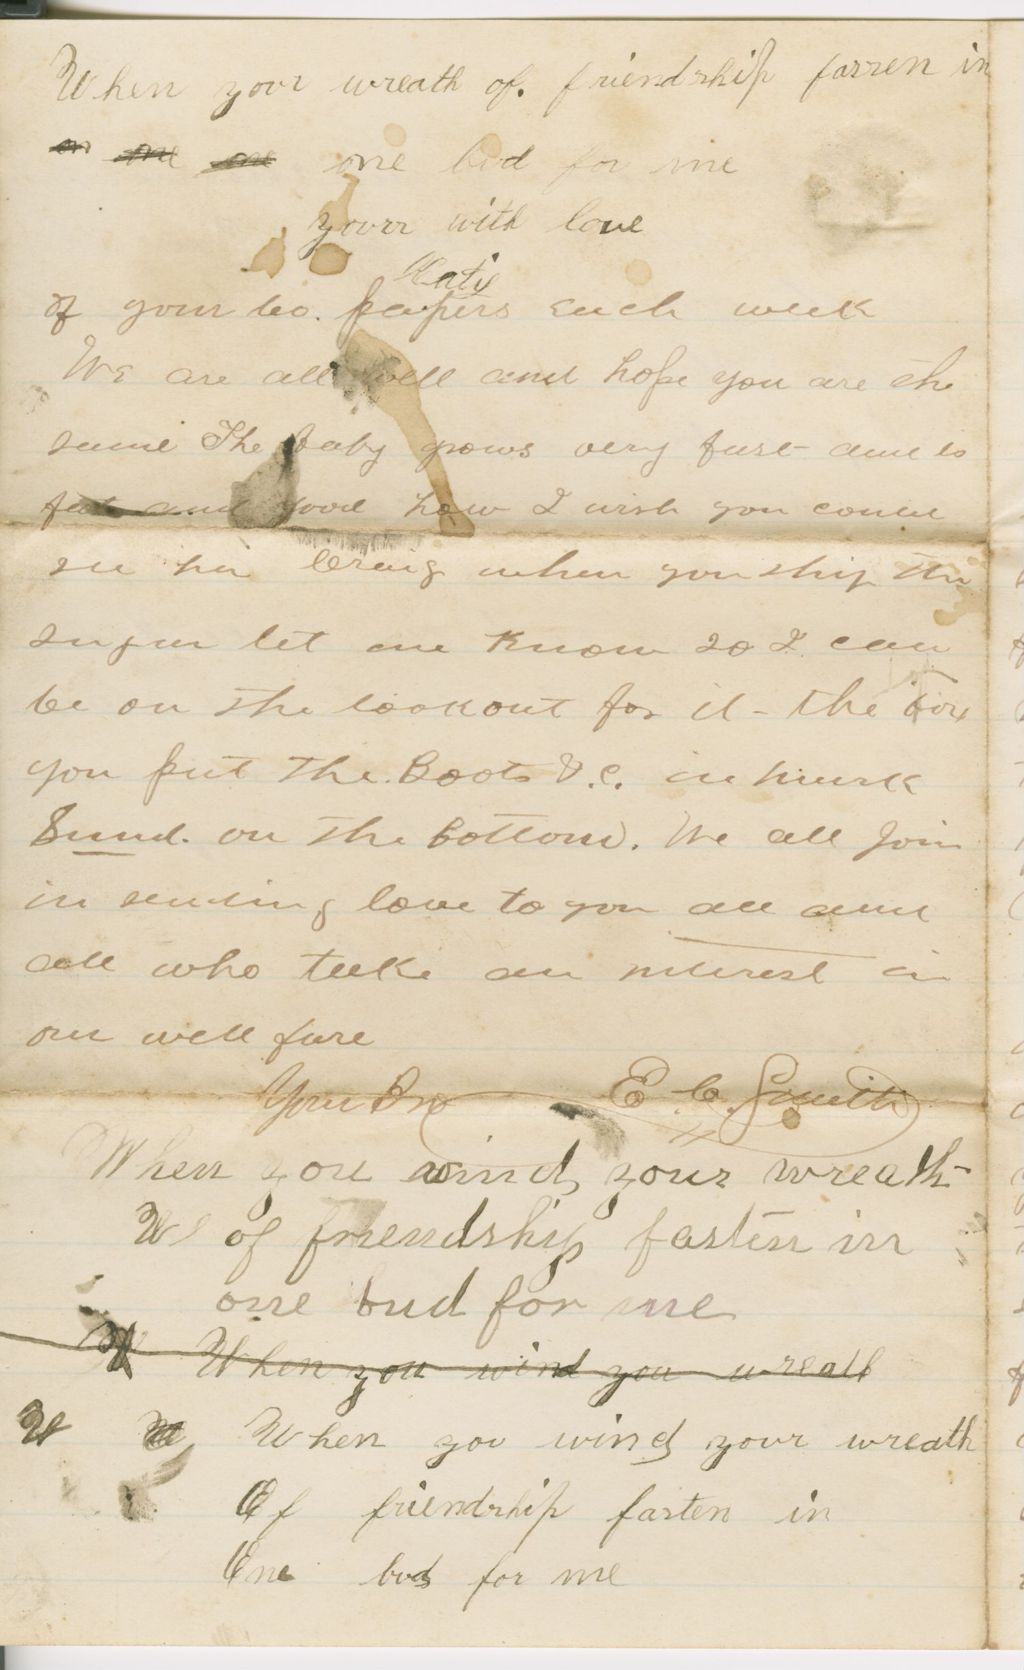 When your wreath of. friendship farren in
one bod for me
yourr with love
Katie
of your Co. papers each week
We are all well and hope you are the
same The baby grows very fast and is
fat and good how I wish you could
see her Craig when you ship the
sugar let me know so I can
be on the lookout for it - the box
you put the Boots &.c. in mark
Sund. on the bottom. We all Join
in sending love to you all and
all who take an interest in
our well fare
Your Bro E. C. Smith
When you wind your wreath
W of friendship fasten in
one bud for me
When you wind you wreath
W W When yov wind your wreath
Of friendship fasten in
One bod for me